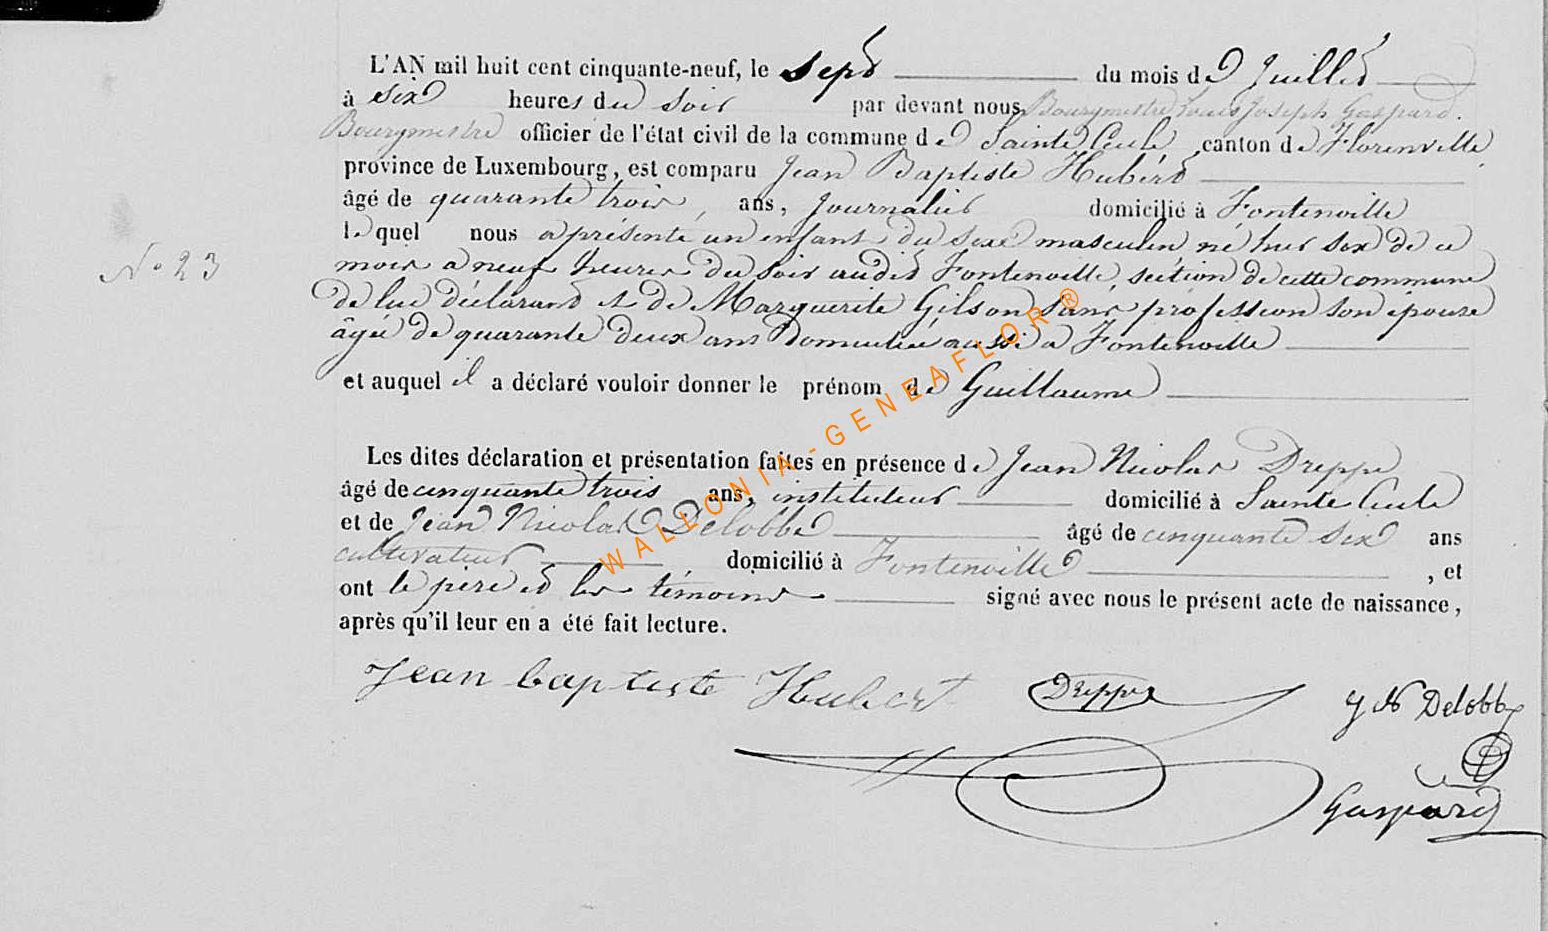 L'AN mil huit cent cinquante-neuf, le sept du mois de Juillet
à six heures du soir par devant nous Bourgmestre Louis Joseph Gaspard.
Bourgmestre officier de l'état civil de la commune de Sainte Cecile canton de Florenville
province de Luxembourg, est comparu Jean Baptiste Hubert
âgé de quarante trois, ans, Journalier domicilié à Fontenoille
N° 23
lequel nous a présenté un enfant du sexe masculin, né hier six de ce
mois a neuf heures du soir audit Fontenoille, section de cette commune
de lui déclarant et de Marguerite Gilson sans profession son épouse
âgée de quarante deux ans domiciliée aussi a Fontenoille
et auquel il a déclaré vouloir donner le prénom de Guillaume
Les dites déclaration et présentation faites en présence de Jean Nicolas Dreppe
âgé de cinquante trois ans, instituteur domicilié à Sainte Cecile
et de Jean Nicolas Delobbe âgé de cinquante six ans
cultivateur domicilié à Fontenoille, et
ont le père et les témoins signé avec nous le présent acte de naissance,
après qu'il leur en a été fait lecture.
Jean baptiste Hubert Dreppe J N Delobbe
Gaspard
WALLONIA-GENEAFLOR®